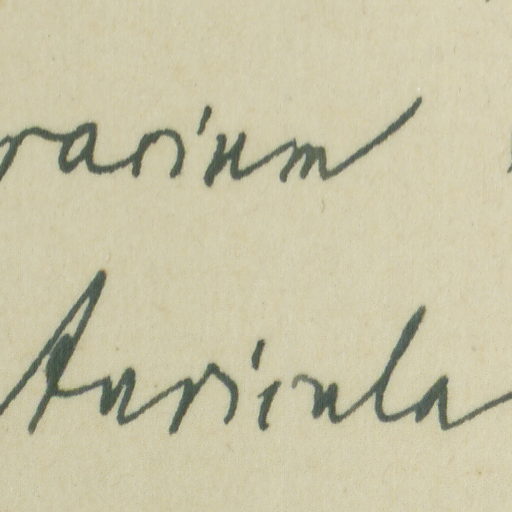 rarium
Auricula